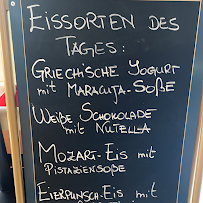 EISSORTEN DES
TAGES:
GRIECHISCHE YOGURT
mit MARACUJA-SOßE
WEIßE SCHOKOLADE
mit NUTELLA
MOZART-EIS mit
PISTAZIENSOßE
EIERPUNSCH-EIS mit